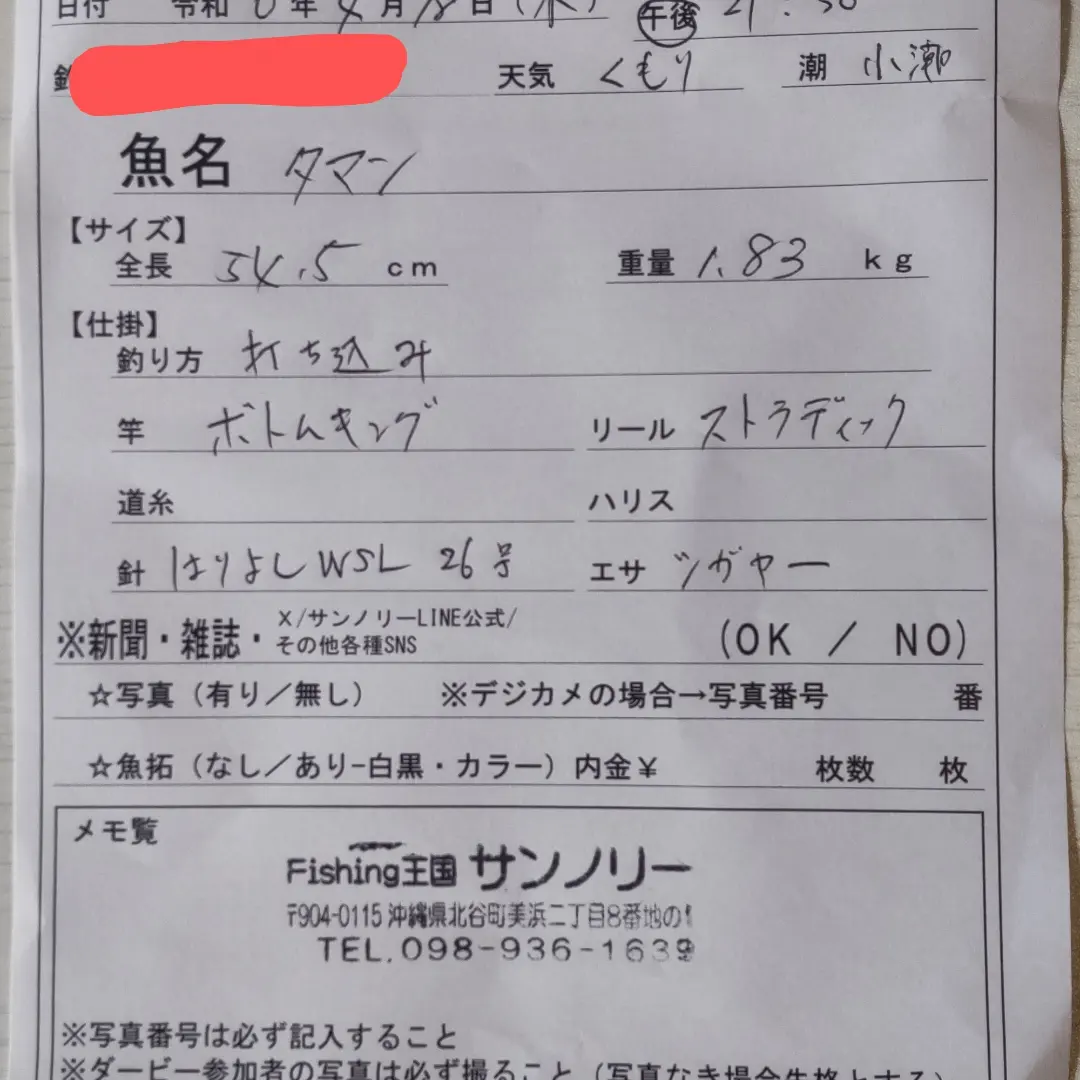 日付 令和 6 年 4 月 18 日 (木) 午後 21:30
天気 くもり 潮 小潮
魚名 タマン
【サイズ】
全長 54.5 cm 重量 1.83 kg
【仕掛】
釣り方 打ち込み
竿 ボトムキング リール ストラディック
道糸 ハリス
針 はりよしWSL 26号 エサ シガヤー
※新聞・雑誌・X/サンノリーLINE公式/
その他各種SNS (OK / NO)
☆写真(有り/無し) ※デジカメの場合→写真番号 番
☆魚拓(なし/あり-白黒・カラー)内金¥ 枚数 枚
メモ覧
Fishing王国 サンノリー
〒904-0115 沖縄県北谷町美浜二丁目8番地の1
TEL.098-936-1639
※写真番号は必ず記入すること
※ダービー参加者の写真は必ず撮ること(写真なき場合失格とする)